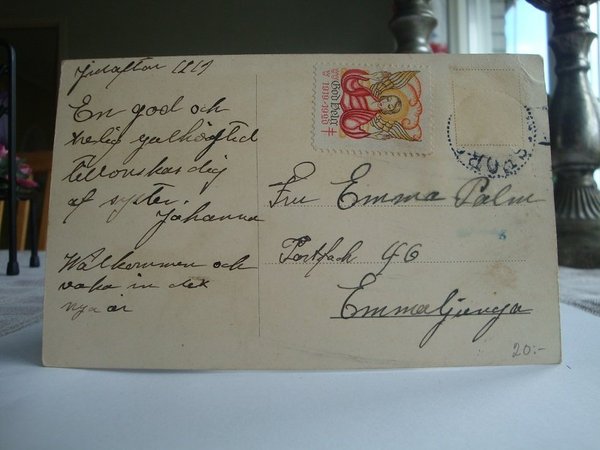 Julafton 1919
En god och
helig julhögtid
tillönskas dig
af syster
Johanna
Wälkommen och
vaka in det
nya år
God Jul!
Fru Emma Palm
Postfack 46
Emmaljunga
20:-